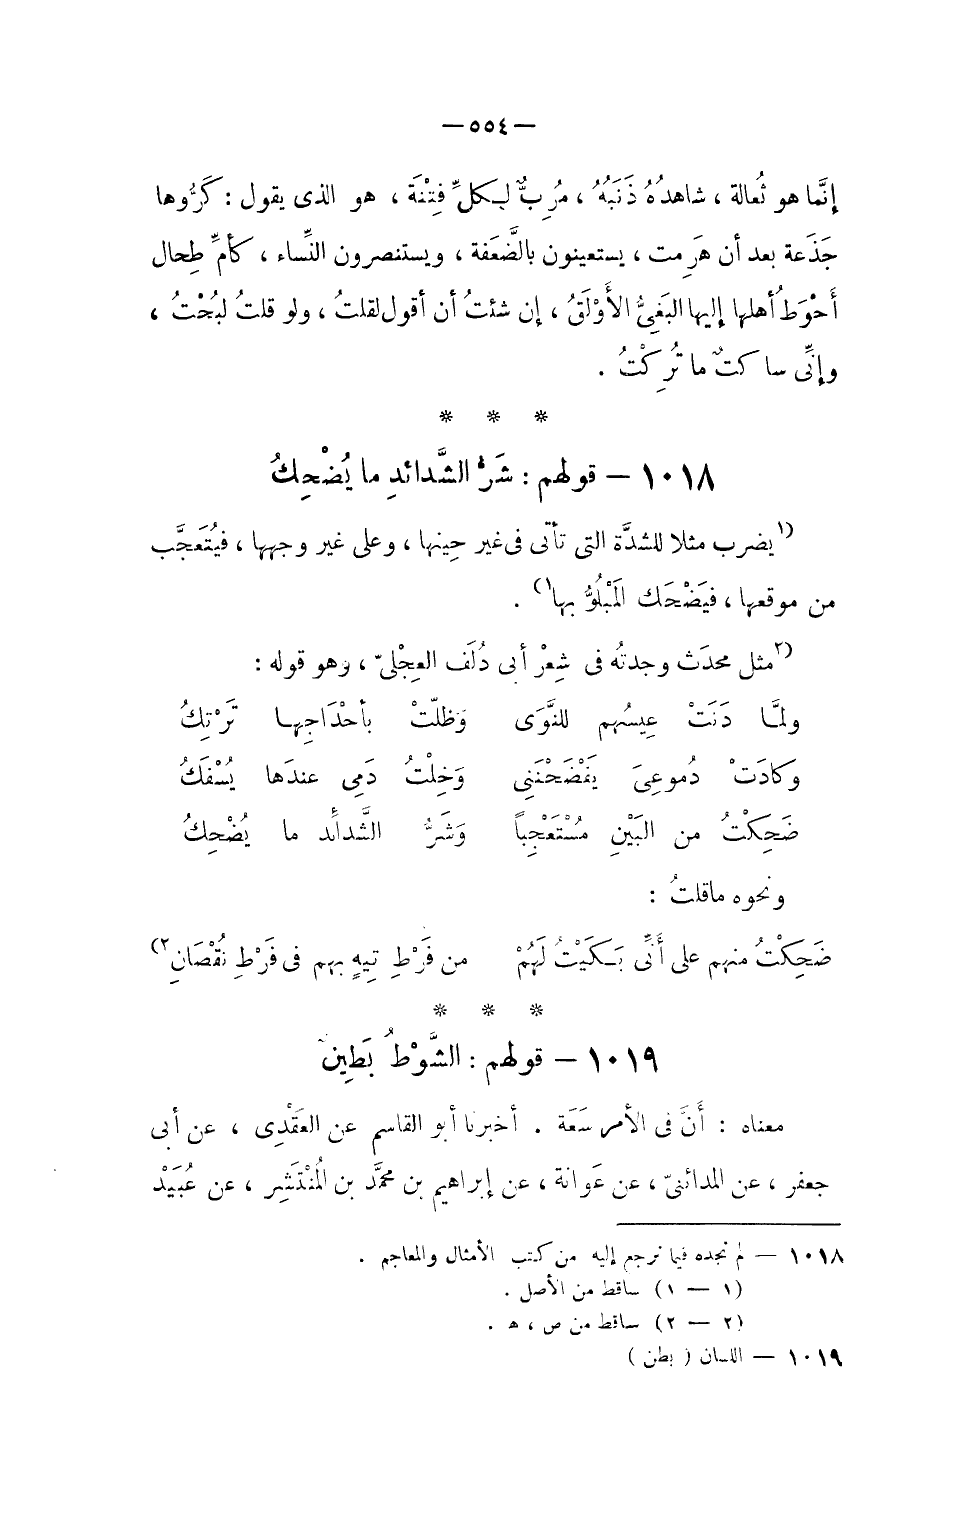 — ٥٥٤ —
إنَّما هو ثُعالة ، شاهدُهُ ذَنَبُهُ ، مُرِبٌّ لِكلِّ فِتْنَة ، هو الذى يقول : كَرُّوها
جَذَعة بعد أن هَرِمت ، يستعينون بالضَّعَفة ، ويستنصرون النِّساء ، كأمِّ طِحال
أَحْوَطُ أهلها إليها البَغِىُّ الأَوْلَقُ ، إن شئتُ أن أقول لقلتُ ، ولو قلتُ لبُحْتُ ،
وإنِّى ساكتٌ ما تُرِكْتُ .
* * *
١٠١٨ — قولهم : شَرُّ الشَّدائدِ ما يُضْحِكُ
(١يضرب مثلا للشدَّة التى تأتى فى غير حِينها ، وعلى غير وجهها ، فيُتَعجَّب
من موقعها ، فيَضْحَك المَبْلُوُّ بها١) .
(٢مثل محدَث وجدتُه فى شِعْر أبى دُلَف العِجْلىّ ، وهو قوله :
ولمَّا دَنَتْ عِيسُهم للنَّوَى وَظلّتْ بأحْدَاجِها تَرْتِكُ
وَكادَتْ دُموعِىَ يَفْضَحْنَنِى وَخِلْتُ دَمِى عندَها يُسْفَكُ
ضَحِكْتُ من البَيْنِ مُسْتَعْجِباً وَشَرُّ الشَّدائد ما يُضْحِكُ
ونحوه ماقلتُ :
ضَحِكْتُ منهم على أَنِّى بَكَيْتُ لَهُمْ من فَرْطِ تِيهٍ بهم فى فَرْطِ نُقْصَانِ٢)
* * *
١٠١٩ — قولهم : الشَّوْطُ بَطِين
معناه : أنَّ فى الأمر سَعَة . أخبرنا أبو القاسم عن العَقَدِى ، عن أبى
جعفر ، عن المدائنىّ ، عن عَوانة ، عن إبراهيم بن محمَّد بن المُنْتَشِر ، عن عُبَيْد
١٠١٨ — لم نجده فيما نرجع إليه من كتب الأمثال والمعاجم .
(١ — ١) ساقط من الأصل .
(٢ — ٢) ساقط من ص ، ه .
١٠١٩ — اللسان ( بطن )